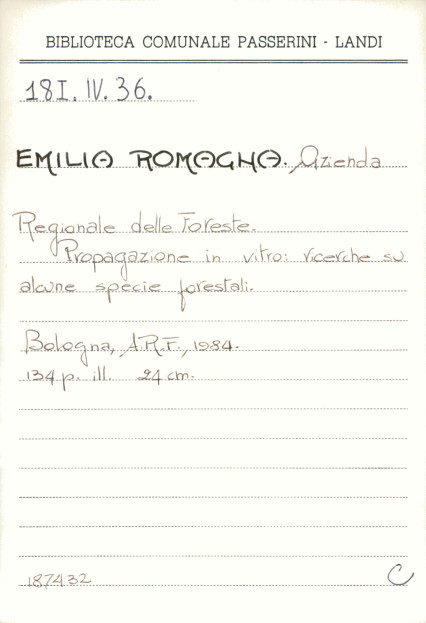 BIBLIOTECA COMUNALE PASSERINI - LANDI
18I. IV. 36.
EMILIA ROMAGNA. Azienda
Regionale delle Foreste.
Propagazione in vitro: ricerche su
alcune specie forestali.
Bologna, A.R.F., 1984.
134 p. ill. 24 cm.
187432
C